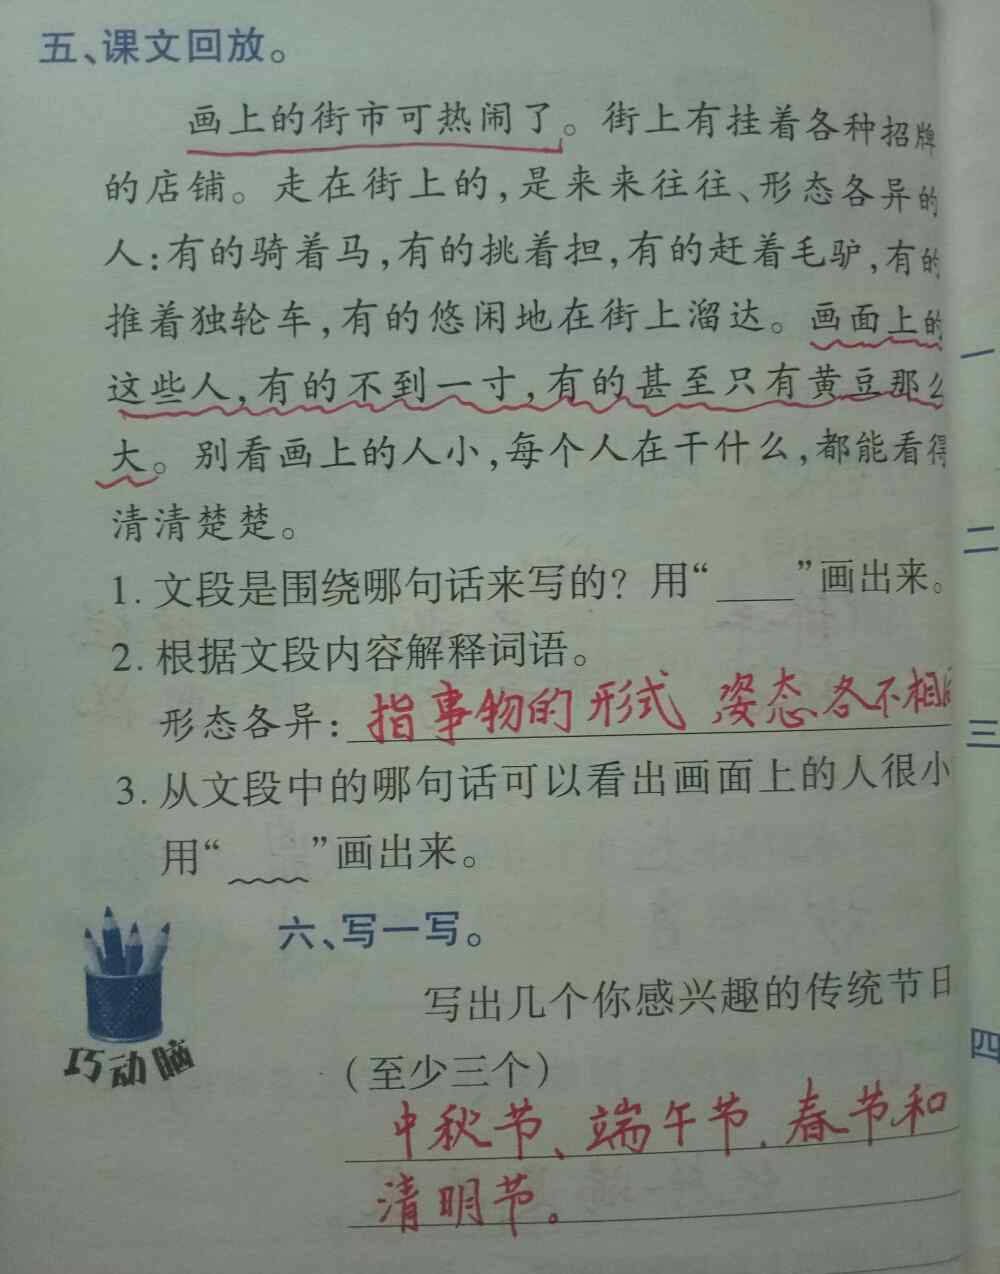 五、课文回放。
画上的街市可热闹了。街上有挂着各种招牌
的店铺。走在街上的,是来来往往、形态各异的
人:有的骑着马,有的挑着担,有的赶着毛驴,有的
推着独轮车,有的悠闲地在街上溜达。画面上的
这些人,有的不到一寸,有的甚至只有黄豆那么
大。别看画上的人小,每个人在干什么,都能看得
清清楚楚。
1. 文段是围绕哪句话来写的?用“____”画出来。
2. 根据文段内容解释词语。
形态各异:指事物的形式 姿态各不相同
3. 从文段中的哪句话可以看出画面上的人很小
用“﹏﹏”画出来。
六、写一写。
巧动脑
写出几个你感兴趣的传统节日
(至少三个)
中秋节、端午节、春节和
清明节。
一
二
三
四